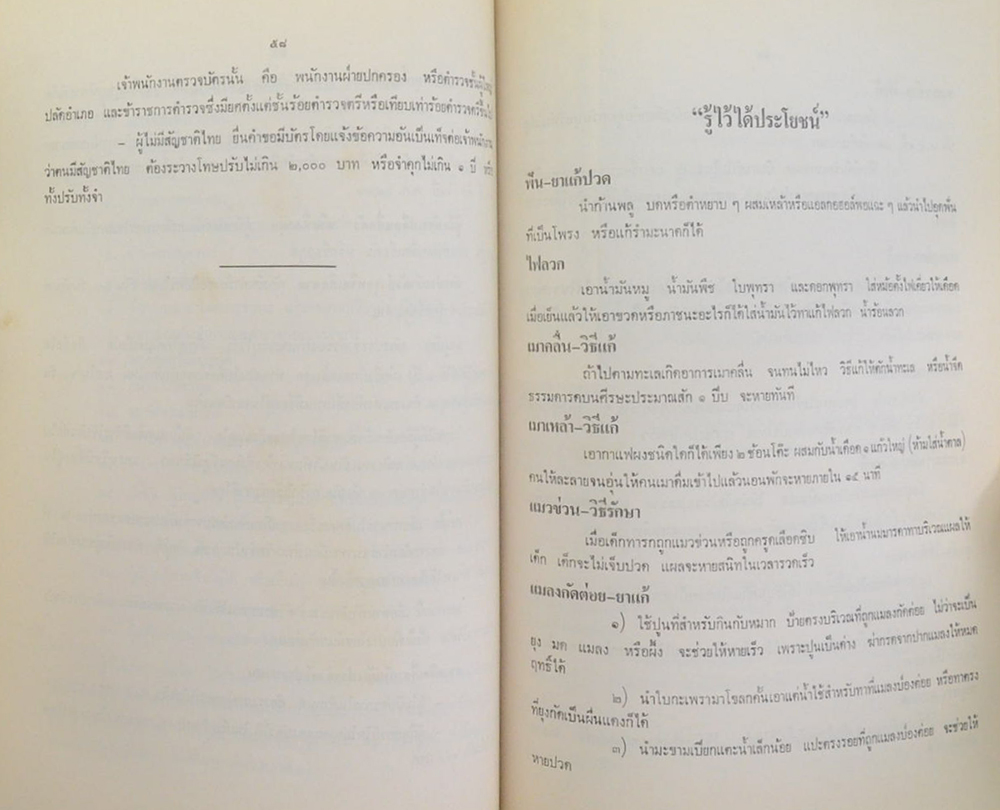 ๕๘
เจ้าพนักงานตรวจบัตรนั้น คือ พนักงานฝ่ายปกครอง หรือตำรวจชั้นผู้ใหญ่
ปลัดอำเภอ และข้าราชการตำรวจซึ่งมียศตั้งแต่ชั้นร้อยตำรวจตรีหรือเทียบเท่าร้อยตำรวจตรีขึ้นไป
– ผู้ไม่มีสัญชาติไทย ยื่นคำขอมีบัตรโดยแจ้งข้อความอันเป็นเท็จต่อเจ้าพนักงาน
ว่าตนมีสัญชาติไทย ต้องระวางโทษปรับไม่เกิน ๒,๐๐๐ บาท หรือจำคุกไม่เกิน ๑ ปี หรือ
ทั้งปรับทั้งจำ
“รู้ไว้ได้ประโยชน์”
ฟัน–ยาแก้ปวด
นำก้านพลู บดหรือตำหยาบ ๆ ผสมเหล้าหรือแอลกอฮอล์พอแฉะ ๆ แล้วนำไปอุดฟัน
ที่เป็นโพรง หรือแก้รำมะนาดก็ได้
ไฟลวก
เอาน้ำมันหมู น้ำมันพืช ใบพุทรา และดอกพุทรา ใส่หม้อตั้งไฟเคี่ยวให้เดือด
เมื่อเย็นแล้วให้เอาขวดหรือภาชนะอะไรก็ได้ใส่น้ำมันไว้ทาแก้ไฟลวก น้ำร้อนลวก
เมาคลื่น–วิธีแก้
ถ้าไปตามทะเลเกิดอาการเมาคลื่น จนทนไม่ไหว วิธีแก้ให้ตักน้ำทะเล หรือน้ำจืด
ธรรมดารดบนศีรษะประมาณสัก ๑ ปี๊บ จะหายทันที
เมาเหล้า–วิธีแก้
เอากาแฟผงชนิดใดก็ได้เพียง ๒ ช้อนโต๊ะ ผสมกับน้ำเดือด ๑ แก้วใหญ่ (ห้ามใส่น้ำตาล)
คนให้ละลายจนอุ่นให้คนเมาดื่มเข้าไปแล้วนอนพักจะหายภายใน ๑๕ นาที
แมวข่วน–วิธีรักษา
เมื่อเด็กทารกถูกแมวข่วนหรือถูกครูดเลือดซิบ ให้เอาน้ำนมมารดาทาบริเวณแผลให้
เด็ก เด็กจะไม่เจ็บปวด แผลจะหายสนิทในเวลารวดเร็ว
แมลงกัดต่อย–ยาแก้
๑) ใช้ปูนที่สำหรับกินกับหมาก ป้ายตรงบริเวณที่ถูกแมลงกัดต่อย ไม่ว่าจะเป็น
ยุง มด แมลง หรือผึ้ง จะช่วยให้หายเร็ว เพราะปูนเป็นด่าง ฆ่ากรดจากปากแมลงให้หมด
ฤทธิ์ได้
๒) นำใบกะเพรามาโขลกคั้นเอาแต่น้ำใช้สำหรับทาที่แมลงป่องต่อย หรือทาตรง
ที่ยุงกัดเป็นผื่นแดงก็ได้
๓) นำมะขามเปียกแตะน้ำเล็กน้อย แปะตรงรอยที่ถูกแมลงป่องต่อย จะช่วยให้
หายปวด